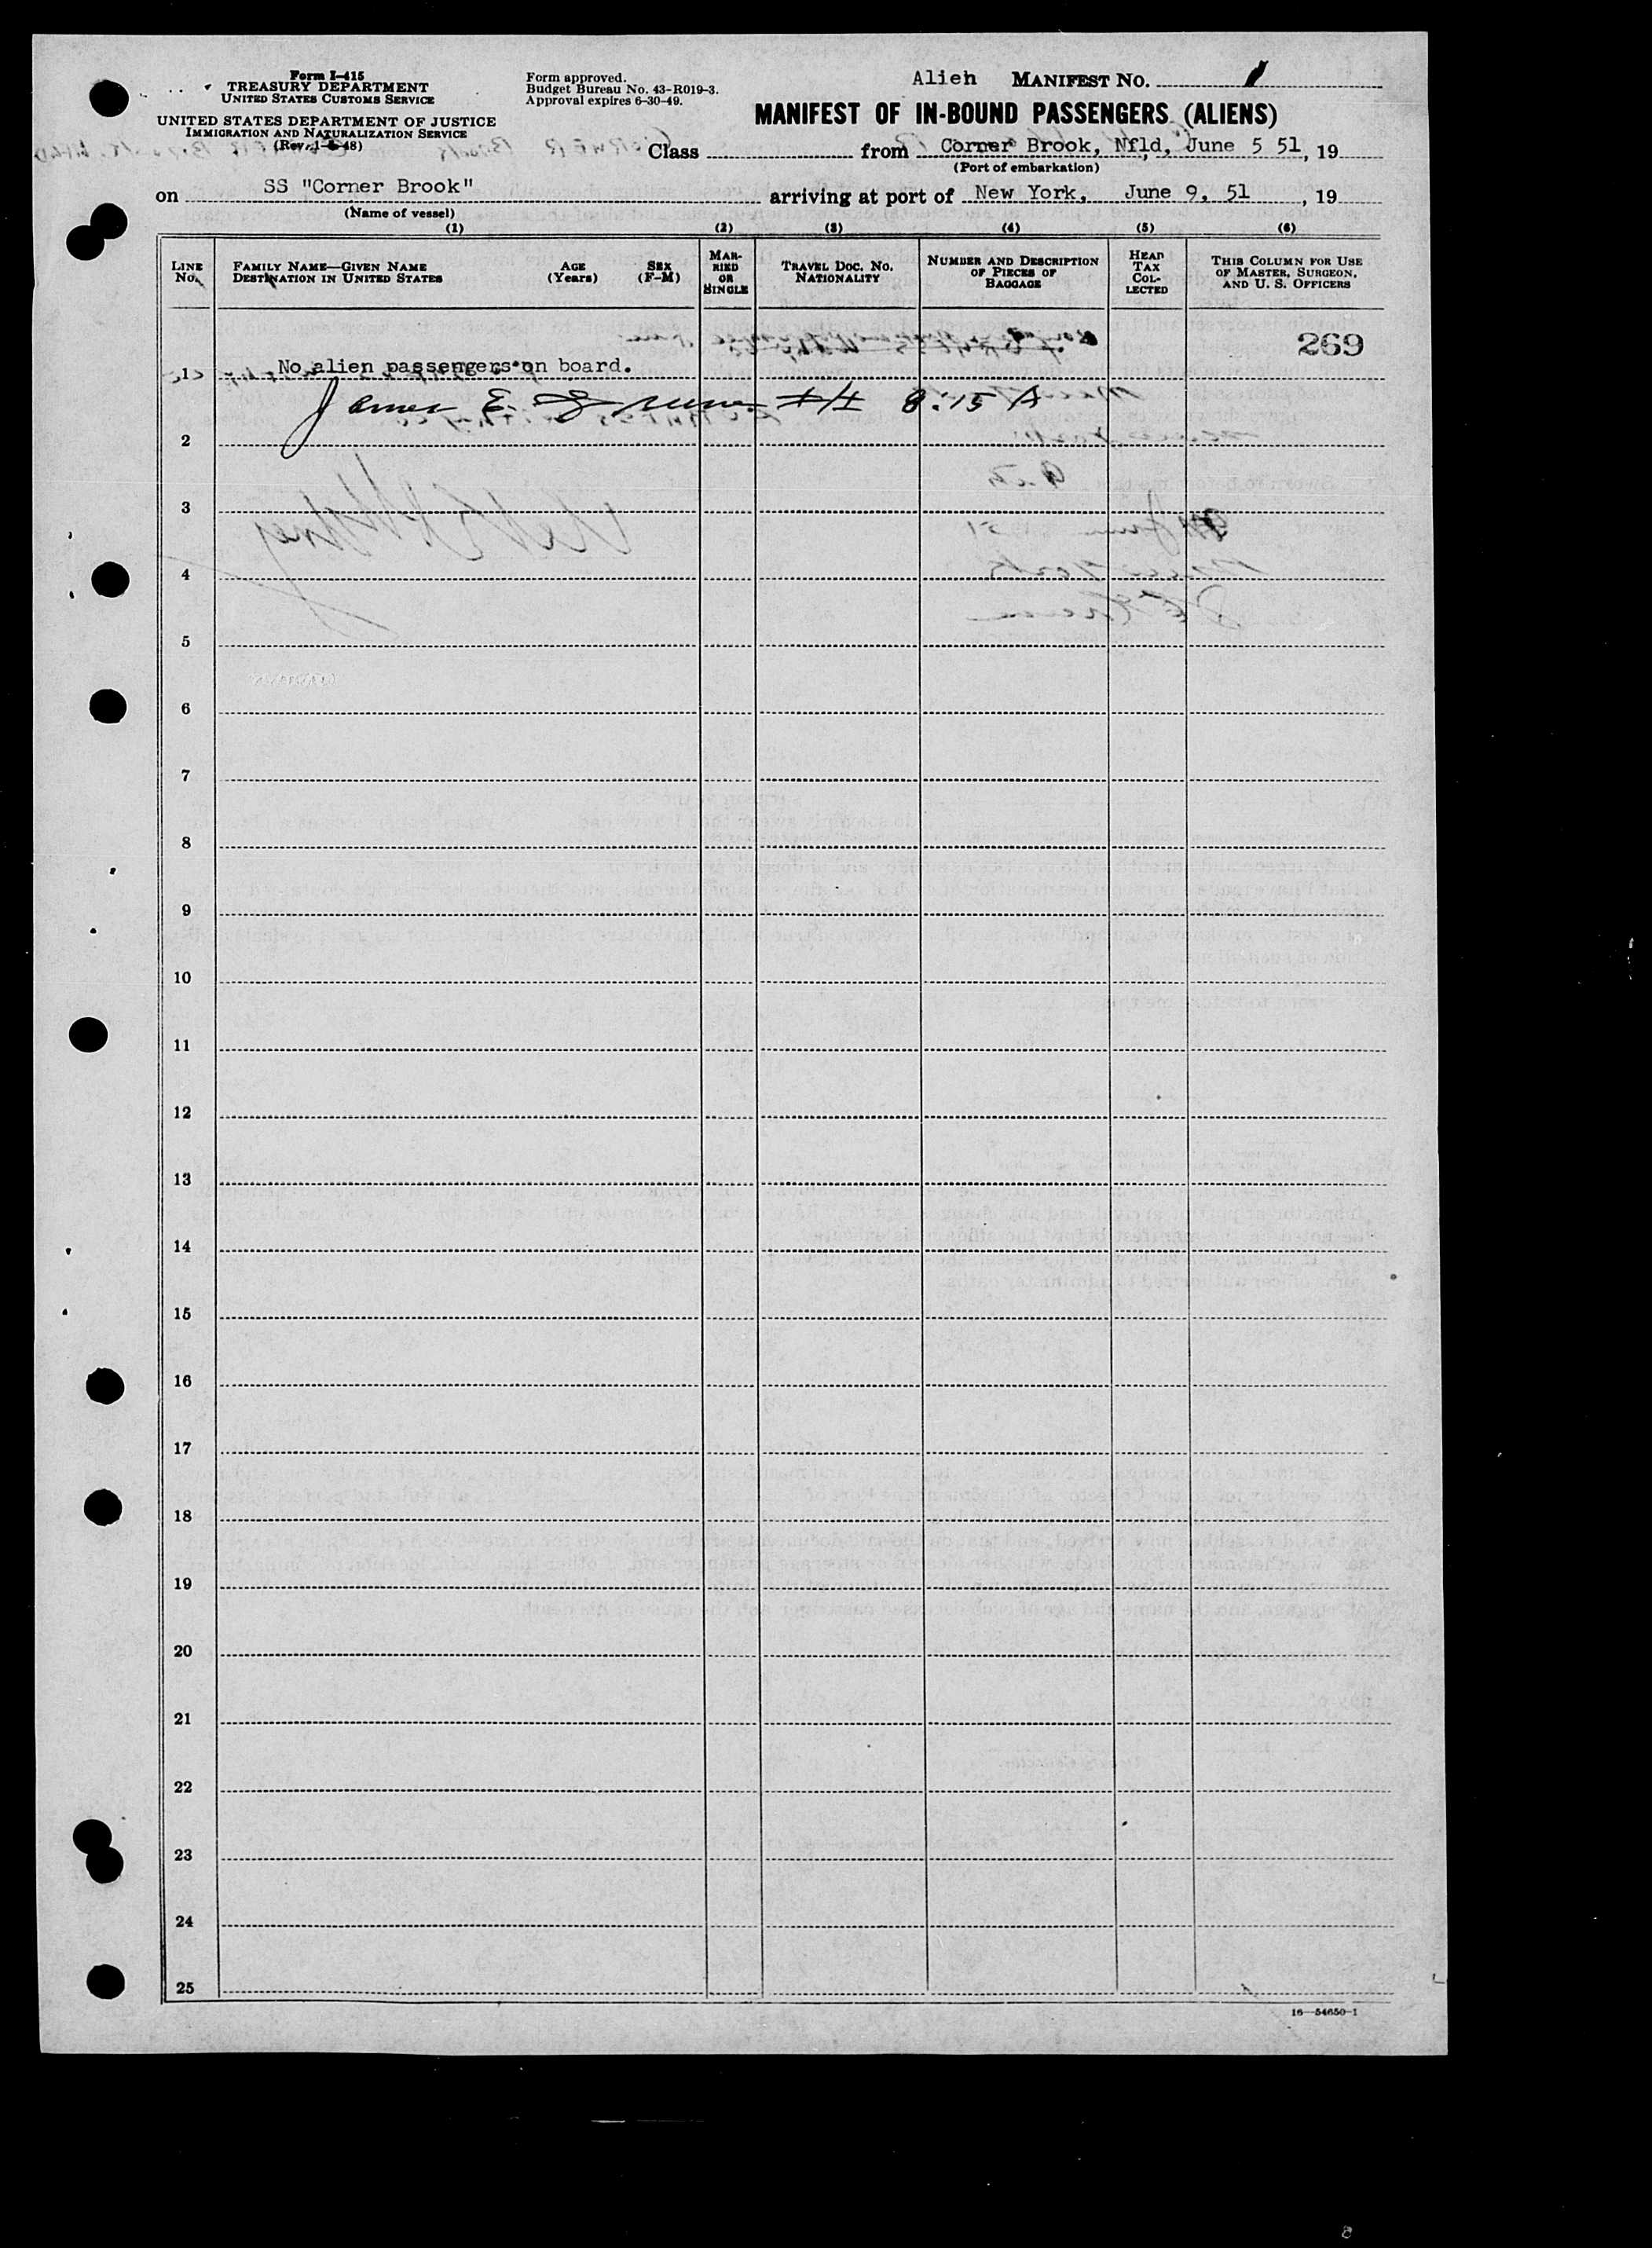 Form I-415
TREASURY DEPARTMENT
UNITED STATES CUSTOMS SERVICE
UNITED STATES DEPARTMENT OF JUSTICE
IMMIGRATION AND NATURALIZATION SERVICE
(Rev. 1-48)
Form approved.
Budget Bureau No. 43-R019-3.
Approval expires 6-30-49.
Alieh MANIFEST No. 1
MANIFEST OF IN-BOUND PASSENGERS (ALIENS)
Class from Corner Brook, Nfld, June 5 51, 19
(Port of embarkation)
on SS "Corner Brook" arriving at port of New York, June 9, 51, 19
(Name of vessel)
(1) (2) (3) (4) (5) (6)
LINE No.
FAMILY NAME—GIVEN NAME
DESTINATION IN UNITED STATES
AGE (Years)
SEX (F-M)
MARRIED OR SINGLE
TRAVEL DOC. NO. NATIONALITY
NUMBER AND DESCRIPTION OF PIECES OF BAGGAGE
HEAD TAX COLLECTED
THIS COLUMN FOR USE OF MASTER, SURGEON, AND U. S. OFFICERS
269
1 No alien passengers on board.
James E. 8:15 A
2
3
4
5
6
7
8
9
10
11
12
13
14
15
16
17
18
19
20
21
22
23
24
25
16—54650-1